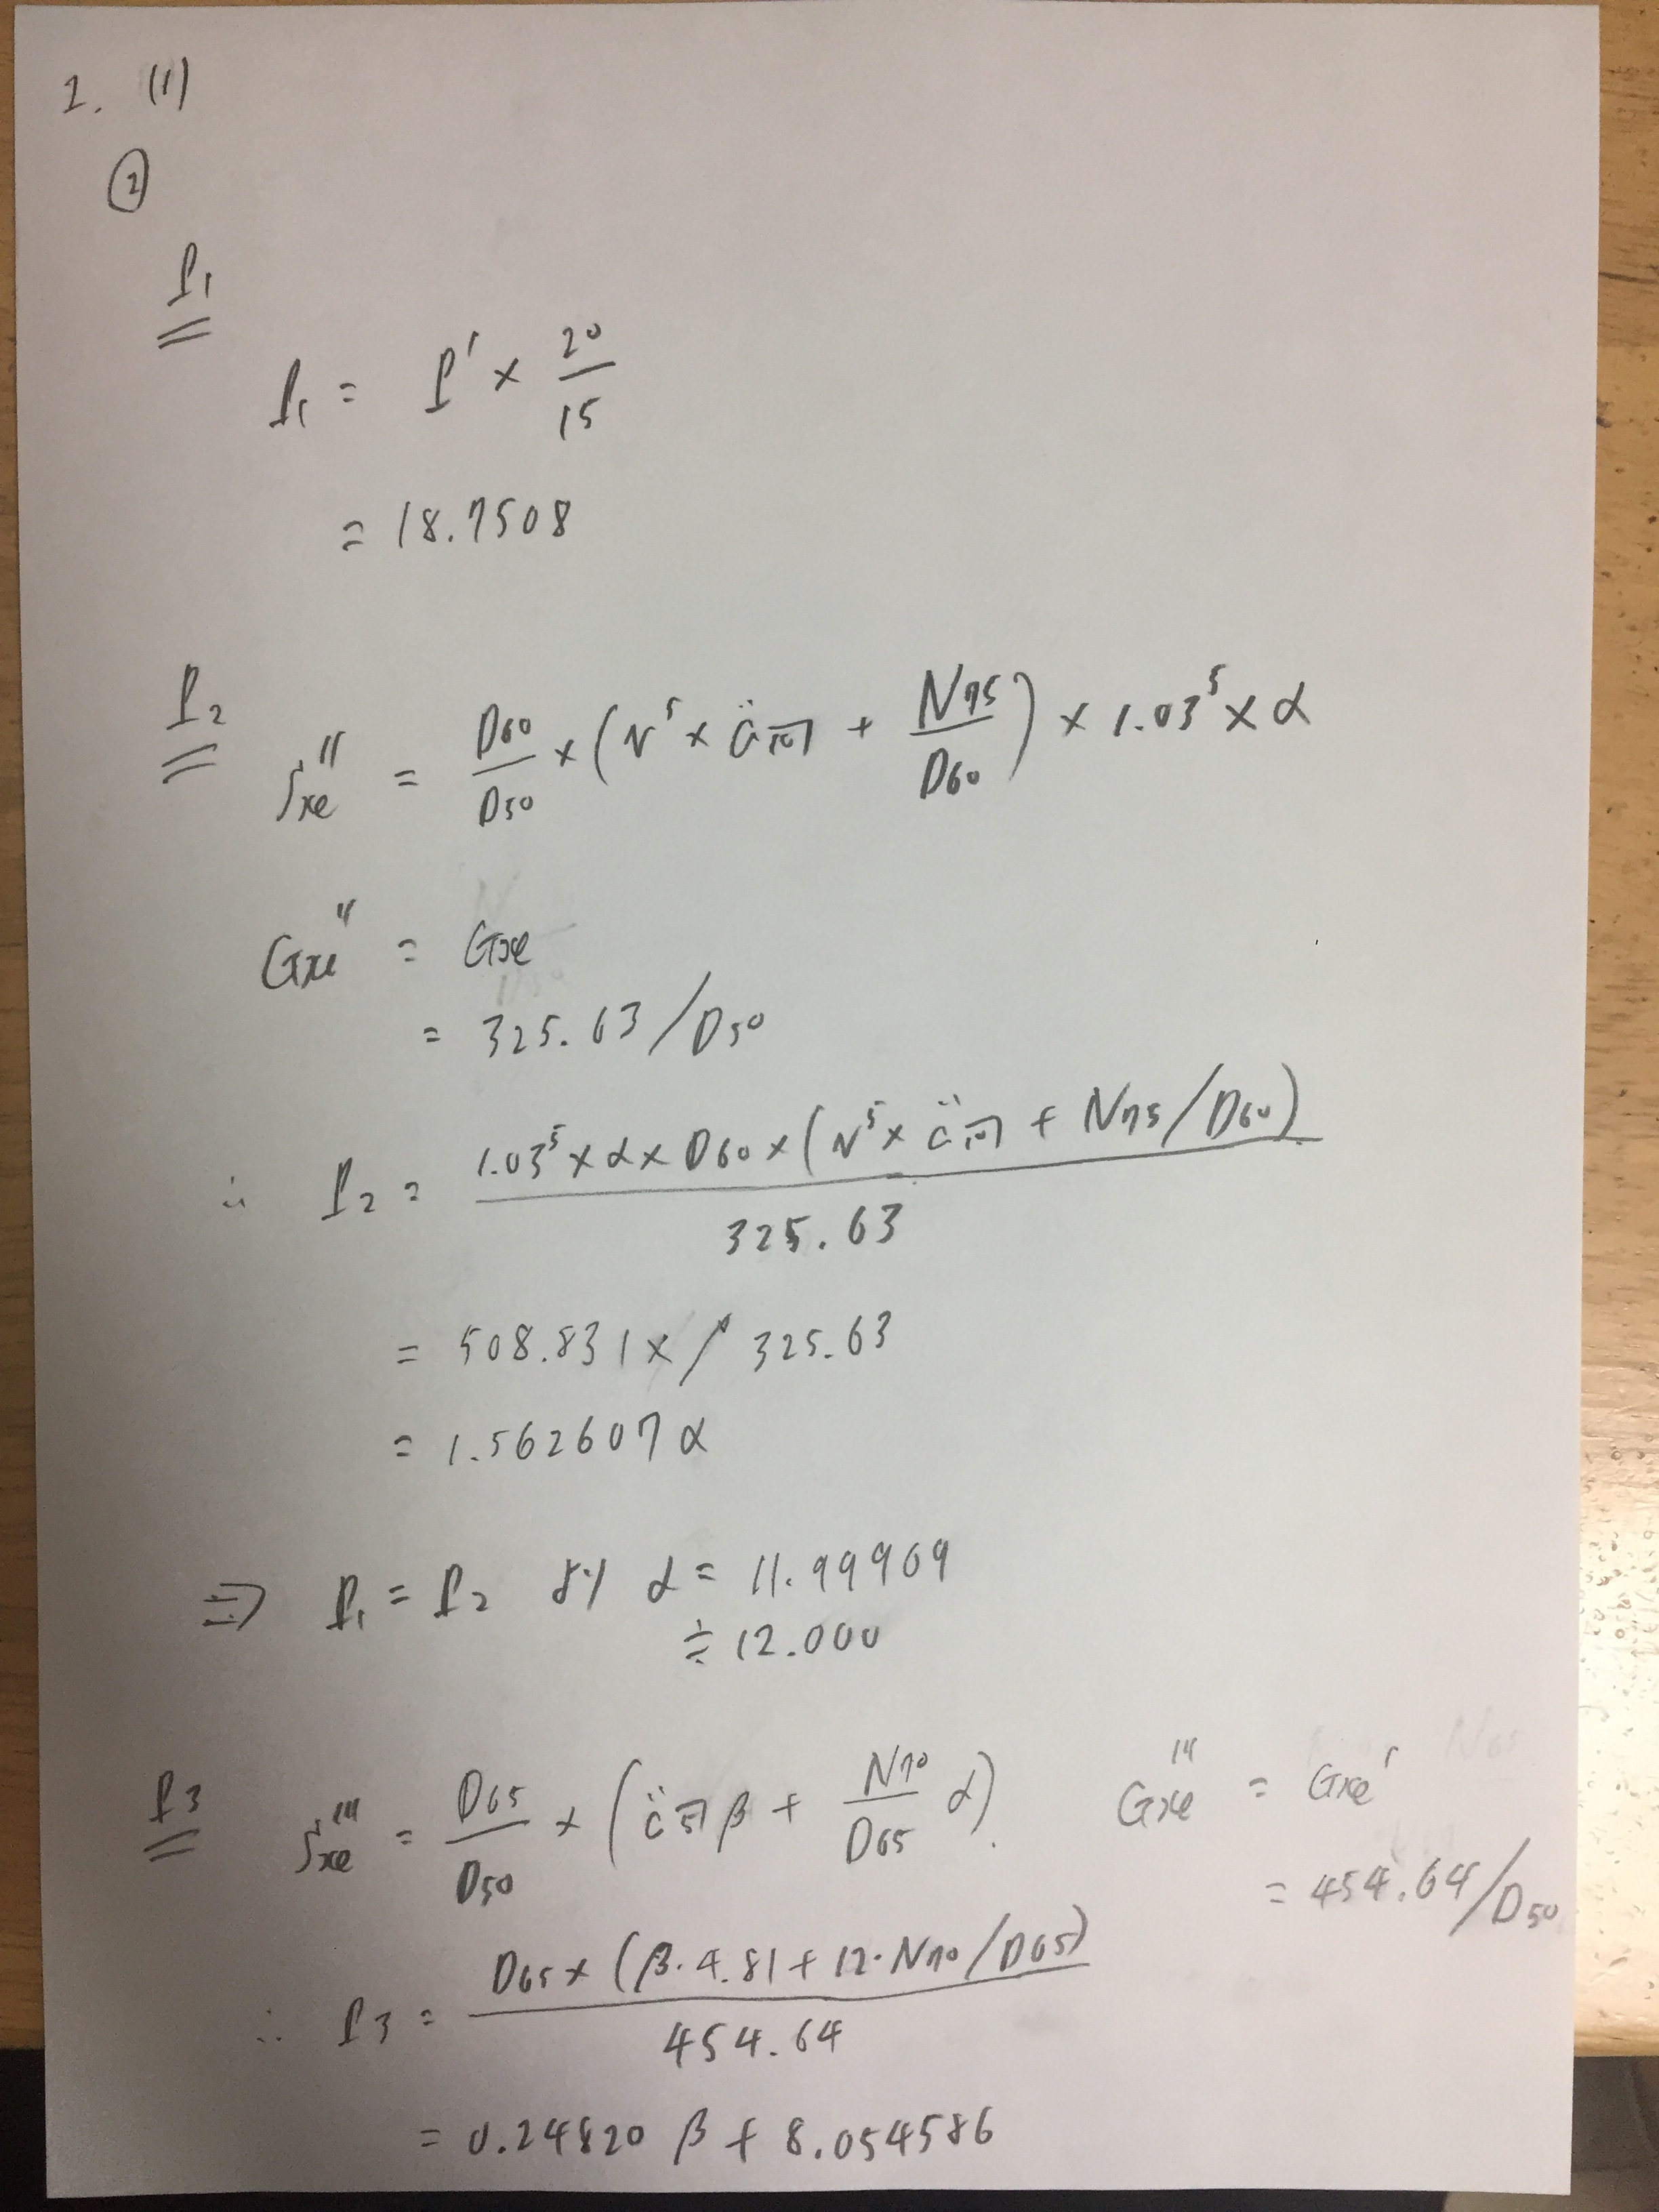 2. (1)
②
P₁
P₁ = P' × 20/15
= 18.7508
P₂
Sxe'' = D60/D50 × (v⁵ × ä10̅| + N75/D60) × 1.03⁵ × α
Gxe'' = Gxe
= 325.63/D50
∴ P₂ = 1.03⁵ × α × D60 × (v⁵ × ä10̅| + N75/D60) / 325.63
= 508.831α / 325.63
= 1.562607α
⇒ P₁ = P₂ より α = 11.99969
≒ 12.000
P3
Sxe''' = D65/D50 × (ä5̅| β + N70/D65 α). Gxe''' = Gxe'
= 454.64/D50
∴ P3 = D65 × (β・4.81 + 12・N70/D65) / 454.64
= 0.24820 β + 8.054586